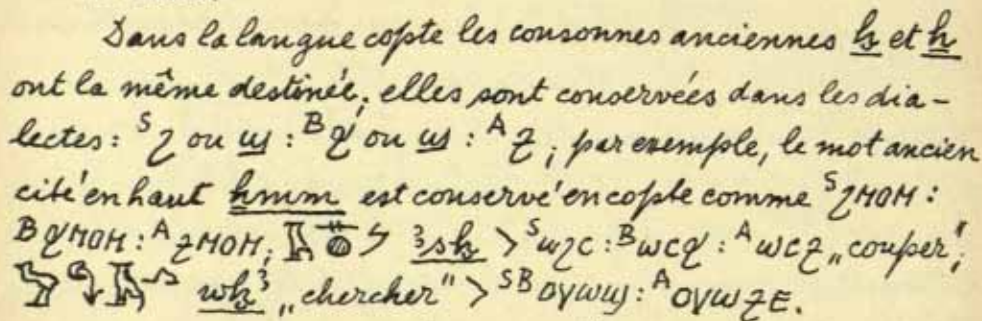 Dans la langue copte les consonnes anciennes ẖ et ḫ
ont la même destinée; elles sont conservées dans les dia-
lectes: ˢϩ ou ϣ : ᴮϧ ou ϣ : ᴬϩ; par exemple, le mot ancien
cité en haut ẖmm est conservé en copte comme ˢϩⲙⲟⲙ :
ᴮϧⲙⲟⲙ : ᴬϩⲙⲟⲙ; ꜣsḫ > ˢⲱϩⲥ : ᴮⲱⲥϧ : ᴬⲱⲥϩ „couper";
wḫꜣ „chercher" > ˢᴮⲟⲩⲱϣ : ᴬⲟⲩⲱϩⲉ.